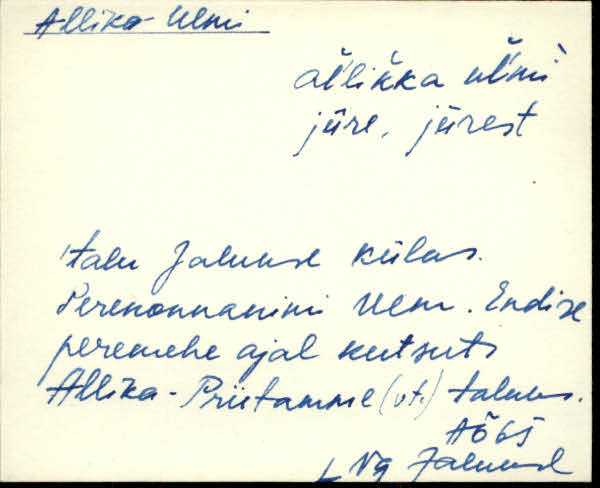 Allika-Ulmi
al'likka ul'mi
jüre, jürest
talu Jaluuse külas.
Perekonnanimi Ulm. Endise
peremehe ajal kutsuti
Allika-Priitamme (vt.) taluks.
AÕ65
L Ng Jaluuse